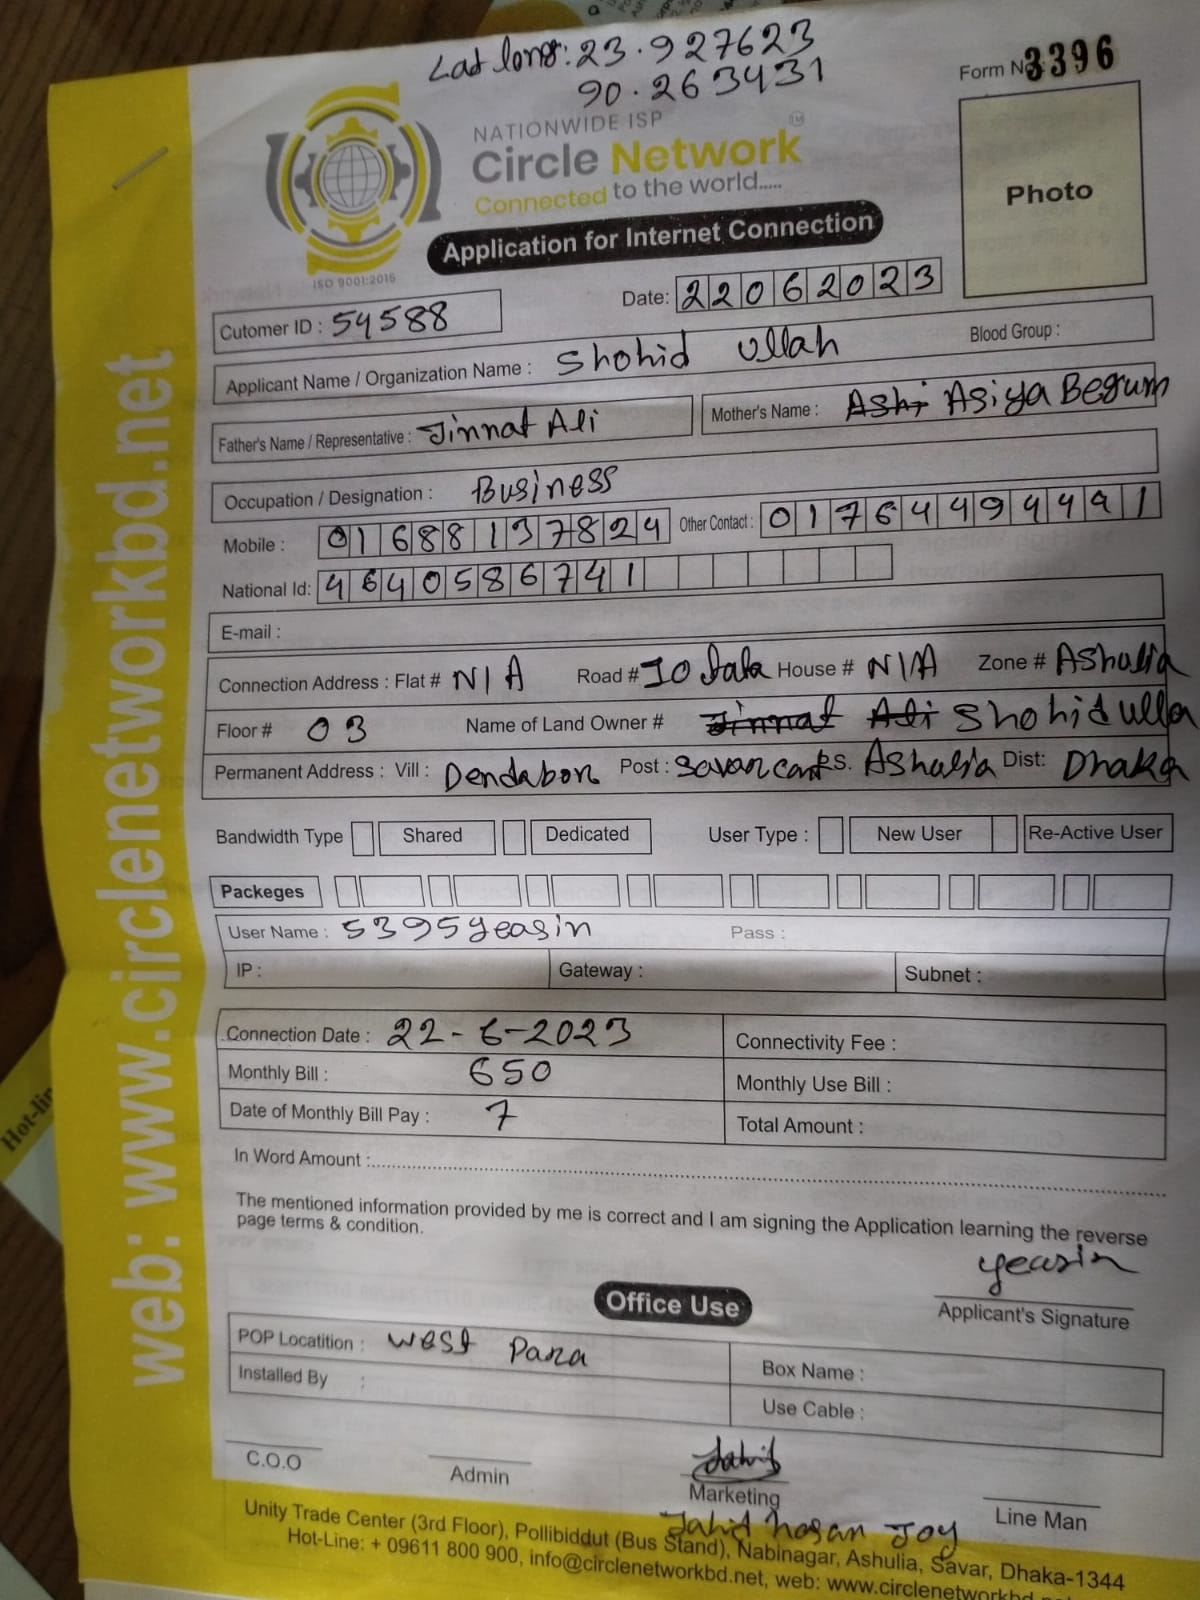 Lat long: 23.927623
90.263431
Form No 3396
NATIONWIDE ISP
Circle Network
TM
Connected to the world.....
Photo
Application for Internet Connection
ISO 9001:2015
Date: 22062023
Cutomer ID : 54588
Applicant Name / Organization Name : Shohid Ullah Blood Group :
Father's Name / Representative : Jinnat Ali Mother's Name : Ashi Asiya Begum
Occupation / Designation : Business
Mobile : 01688137824 Other Contact : 01764494491
National Id: 4640586741
E-mail :
Connection Address : Flat # N/A Road # 10 tala House # N/A Zone # Ashulia
Floor # 03 Name of Land Owner # Jinnat Ali Shohid ulla
Permanent Address : Vill : Dendabor Post : Savar cant P.S. Ashulia Dist: Dhaka
Bandwidth Type Shared Dedicated User Type : New User Re-Active User
Packeges
User Name : 5395yeasin Pass :
IP : Gateway : Subnet :
Connection Date : 22-6-2023 Connectivity Fee :
Monthly Bill : 650 Monthly Use Bill :
Date of Monthly Bill Pay : 7 Total Amount :
In Word Amount :
The mentioned information provided by me is correct and I am signing the Application learning the reverse
page terms & condition.
yeasin
Applicant's Signature
Office Use
POP Locatition : West Para Box Name :
Installed By : Use Cable :
Jahid
C.O.O Admin Marketing Line Man
Jahid hasan Joy
Unity Trade Center (3rd Floor), Pollibiddut (Bus Stand), Nabinagar, Ashulia, Savar, Dhaka-1344
Hot-Line: + 09611 800 900, info@circlenetworkbd.net, web: www.circlenetworkbd.net
web: www.circlenetworkbd.net
Hot-lin